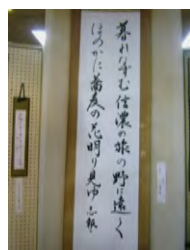 暮れなずむ信濃の旅の野に遠く
ほのかに蕎麦の花明り見ゆ